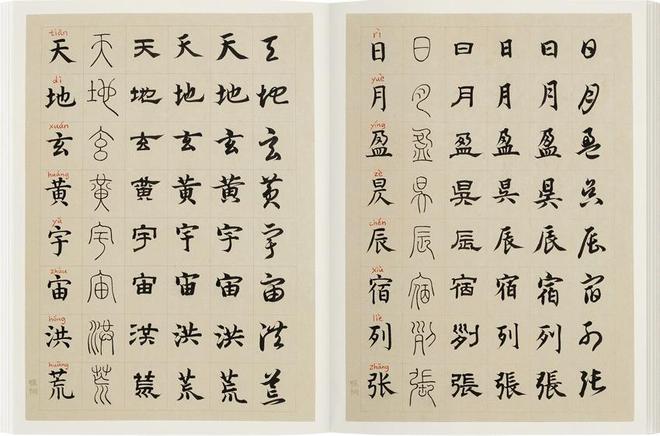 tiān
天 天 天 天 天 天
dì
地 地 地 地 地 地
xuán
玄 玄 玄 玄 玄 玄
huáng
黄 黄 黄 黄 黄 黄
yǔ
宇 宇 宇 宇 宇 宇
zhòu
宙 宙 宙 宙 宙 宙
hóng
洪 洪 洪 洪 洪 洪
huāng
荒 荒 荒 荒 荒 荒
rì
日 日 日 日 日 日
yuè
月 月 月 月 月 月
yíng
盈 盈 盈 盈 盈 盈
zè
昃 昃 昃 昃 昃 昃
chén
辰 辰 辰 辰 辰 辰
xiù
宿 宿 宿 宿 宿 宿
liè
列 列 列 列 列 列
zhāng
张 張 張 張 張 张